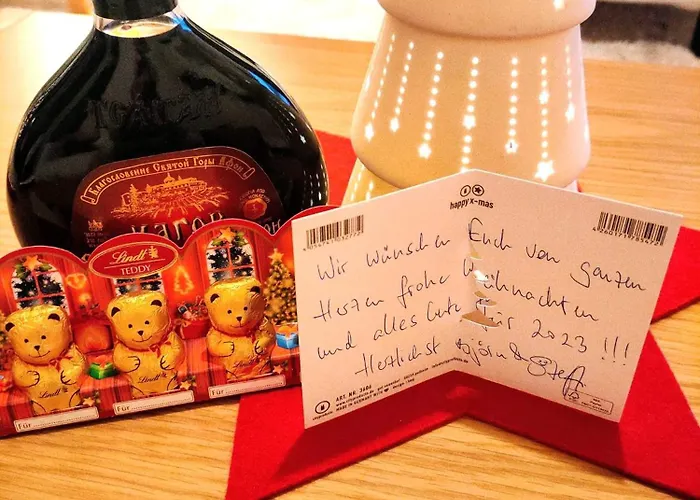 Благословение Святой Горы Афон
КАГОР
Lindt
TEDDY
Lindt
Lindt
Für
Für
Für
happy x-mas
Wir wünschen Euch von ganzen
Herzen frohe Weihnachten
und alles Gute für 2023 !!!
Herzlichst Björn &
ART. NR. 3606
MADE IN GERMANY WITH